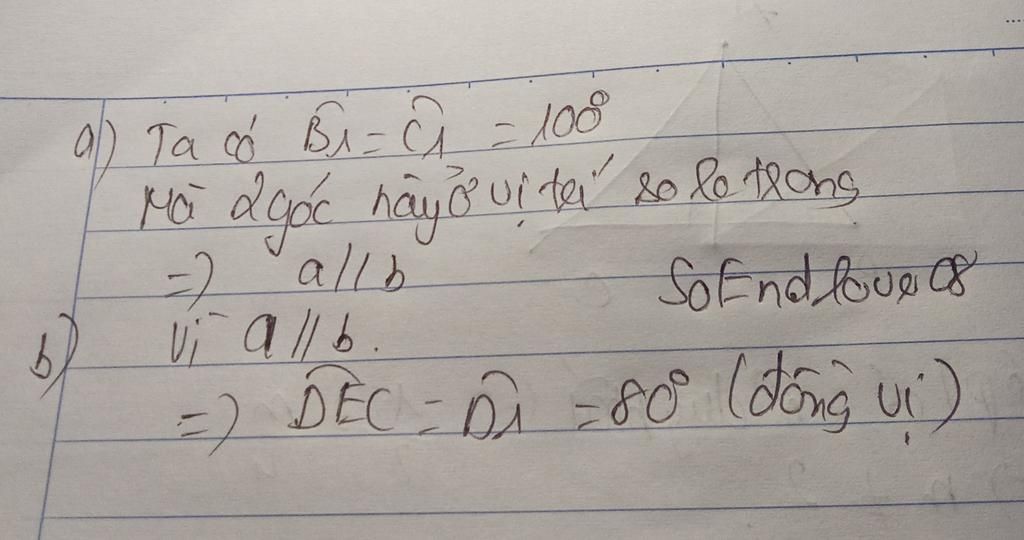 a) Ta có B̂1 = Ĉ1 = 100°
Mà 2 góc này ở vị trí so le trong
=) a // b
SoEndlove08
b) Vì a // b.
=) D̂EC = D̂1 = 80° (đồng vị)